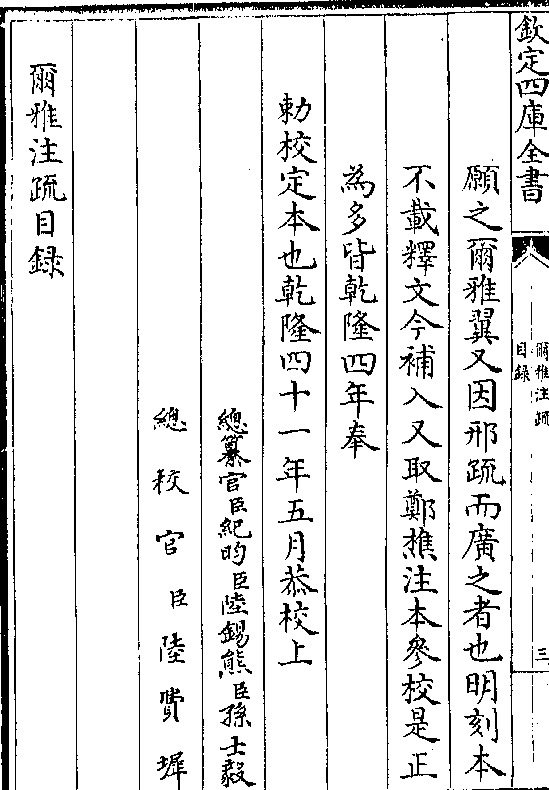 欽定四庫全書
爾雅注疏
目錄
三
願之爾雅翼又因邢疏而廣之者也明刻本
不載釋文今補入又取鄭樵注本參校是正
為多皆乾隆四年奉
勅校定本也乾隆四十一年五月恭校上
總纂官臣紀昀臣陸錫熊臣孫士毅
總校官臣陸費墀
爾雅注疏目錄